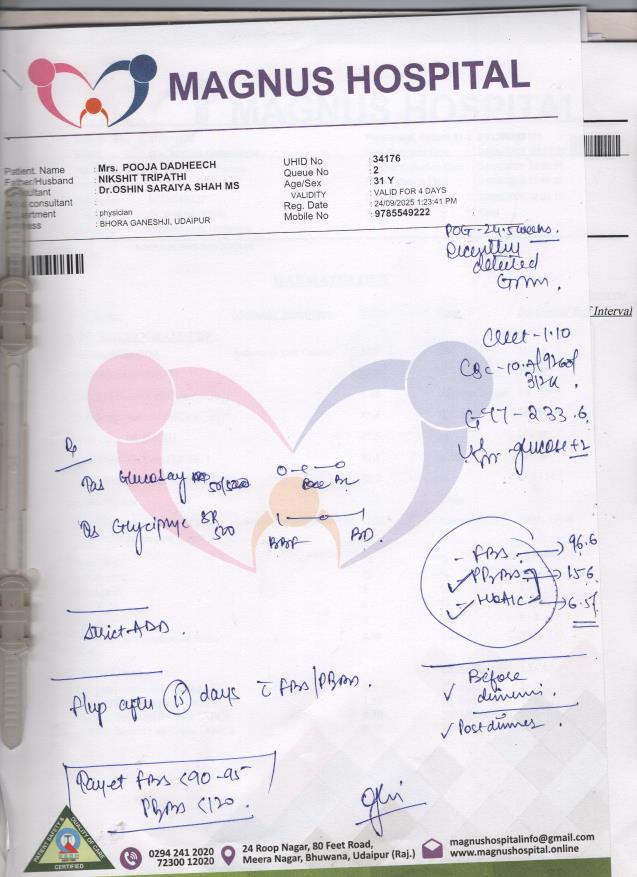 MAGNUS HOSPITAL
Patient. Name : Mrs. POOJA DADHEECH
Father/Husband : NIKSHIT TRIPATHI
Consultant : Dr.OSHIN SARAIYA SHAH MS
consultant :
: physician
: BHORA GANESHJI, UDAIPUR
UHID No : 34176
Queue No : 2
Age/Sex : 31 Y
VALIDITY : VALID FOR 4 DAYS
Reg. Date : 24/09/2025 1:23:41 PM
Mobile No : 9785549222
POG - 24.5 weeks.
detected
GDM.
Interval
Creat - 1.10
CBC - 10.
312K.
GTT - 233.6
glucose +2
Rx
50/500
SR
500
BBF BD.
- FBS → 96.6
✓ PPBS → 156
✓ HbA1C → 6.5%
Strict ADD.
f/up after 15 days c̄ FBS/PPBS.
Before
✓ dinner.
✓ Post dinner.
Target FBS <90-95
PPBS <120.
PATIENT SAFETY & QUALITY OF CARE
CERTIFIED
0294 241 2020
72300 12020
24 Roop Nagar, 80 Feet Road,
Meera Nagar, Bhuwana, Udaipur (Raj.)
magnushospitalinfo@gmail.com
www.magnushospital.online